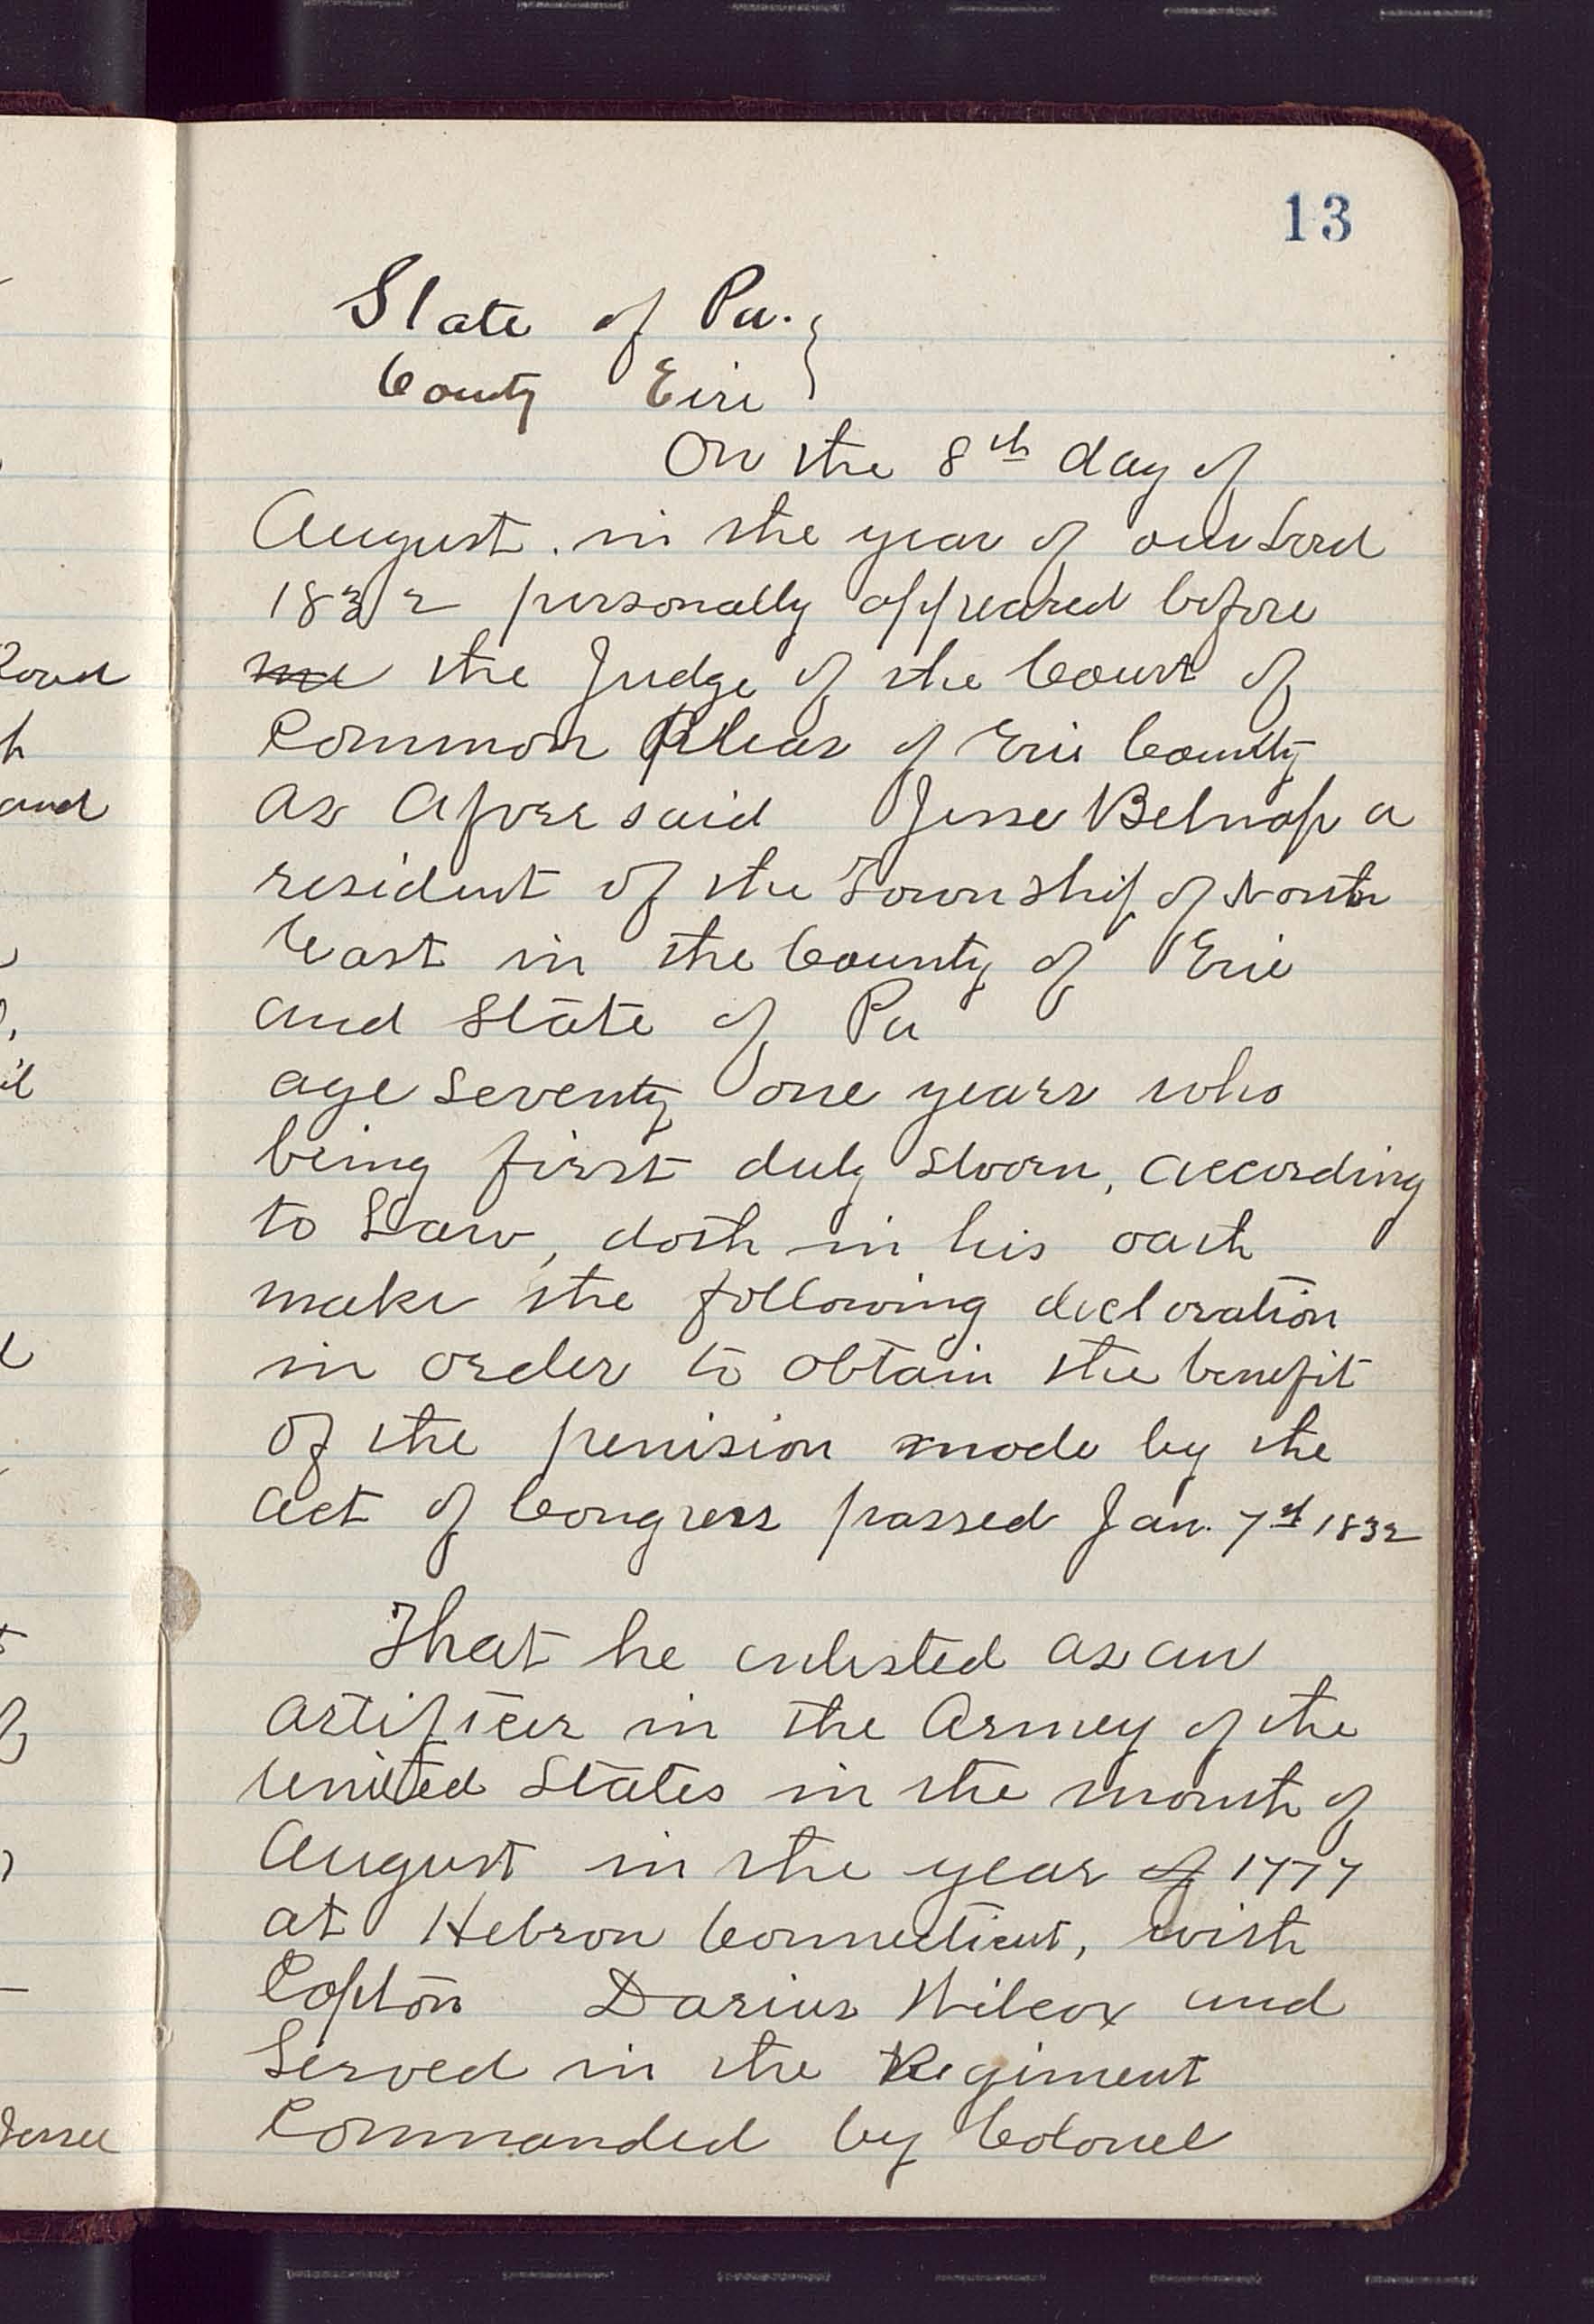 13
State of Pa. }
County Eire }
On the 8th day of
August. in the year of our Lord
1832 personally appeared before
me the Judge of the Court of
Common Pleas of Erie County
as Aforesaid Jesse Belnap a
resident of the Township of North
East in the County of Erie
and State of Pa
age seventy one years who
being first duly sworn, according
to Law, doth in his oath
make the following decloration
in order to obtain the benefit
of the penision made by the
act of Congress passed Jan. 7th 1832
That he enlisted as an
artificer in the Army of the
United States in the month of
August in the year of 1777
at Hebron Connecticut, with
Copton Darius Wilcox and
Served in the Regiment
Commanded by Colonel
Road
h
and
Jessee